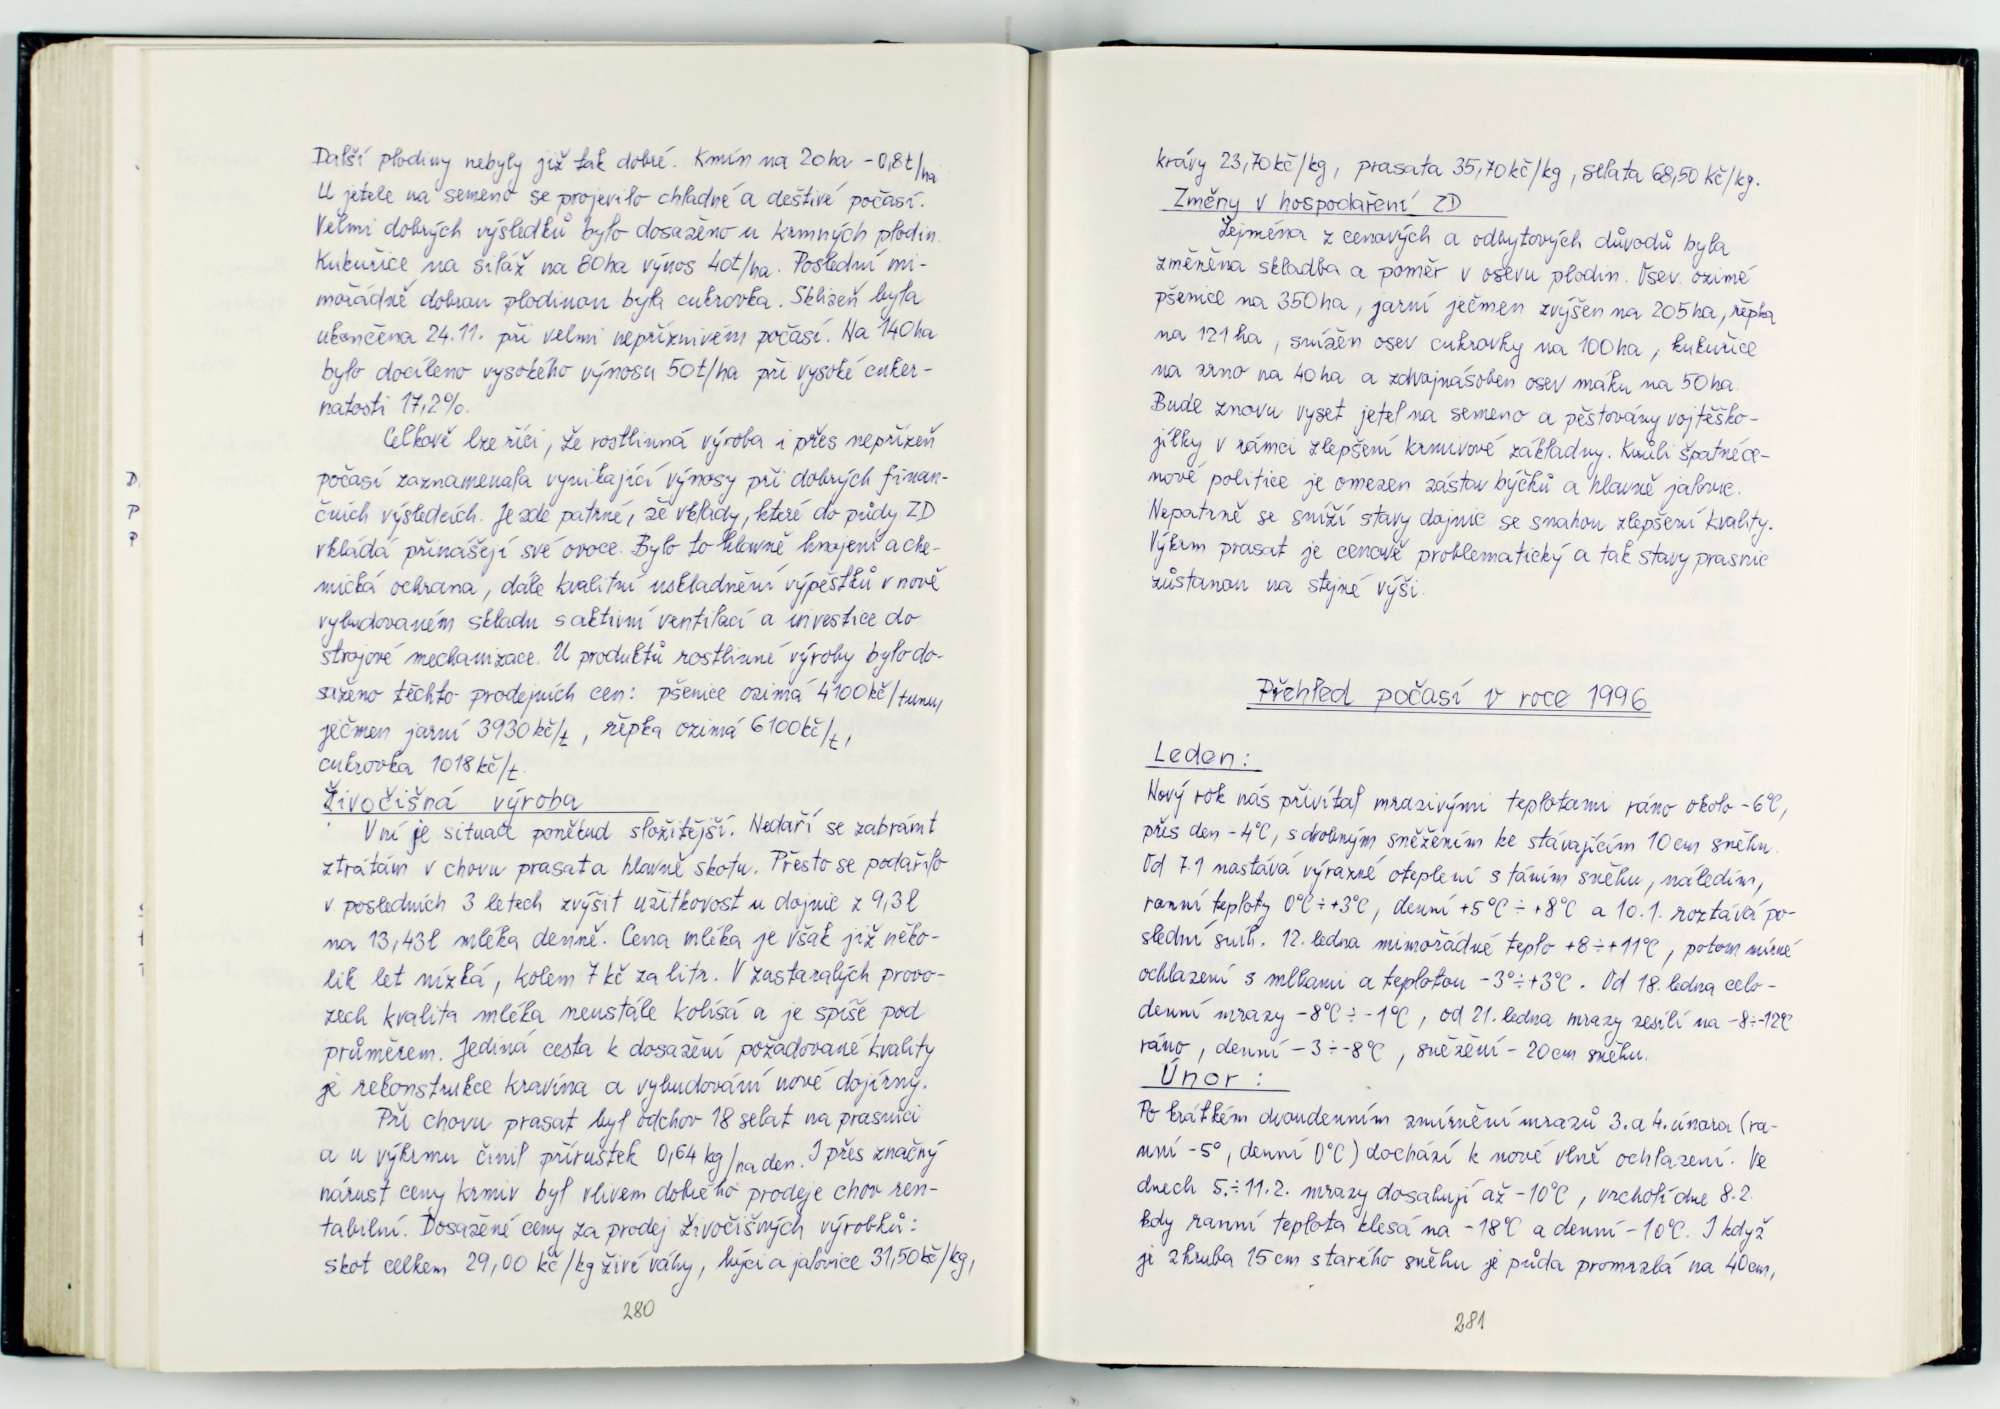 Další plodiny nebyly již tak dobré. Kmín na 20ha - 0,8t/ha
U jetele na semeno se projevilo chladné a deštivé počasí.
Velmi dobrých výsledků bylo dosaženo u krmných plodin.
Kukuřice na siláž na 80ha výnos 40t/ha. Poslední mi-
mořádně dobrou plodinou byla cukrovka. Sklizeň byla
ukončena 24.11. při velmi nepříznivém počasí. Na 140ha
bylo docíleno vysokého výnosu 50t/ha při vysoké cuker-
natosti 17,2%.
Celkově lze říci, že rostlinná výroba i přes nepřízeň
počasí zaznamenala vynikající výnosy při dobrých finan-
čních výsledcích. Je zde patrné, že vklady, které do půdy ZD
vkládá přinášejí své ovoce. Bylo to hlavně hnojení a che-
mická ochrana, dále kvalitní uskladnění výpěstků v nově
vybudovaném skladu s aktivní ventilací a investice do
strojové mechanizace. U produktů rostlinné výroby bylo do-
saženo těchto prodejních cen: pšenice ozimá 4100kč/tunu,
ječmen jarní 3930kč/t, řepka ozimá 6100kč/t,
cukrovka 1018kč/t.
Živočišná výroba
V ní je situace poněkud složitější. Nedaří se zabránit
ztrátám v chovu prasat a hlavně skotu. Přesto se podařilo
v posledních 3 letech zvýšit užitkovost u dojnic z 9,3l
na 13,43l mléka denně. Cena mléka je však již něko-
lik let nízká, kolem 7kč za litr. V zastaralých provo-
zech kvalita mléka neustále kolísá a je spíše pod
průměrem. Jediná cesta k dosažení požadované kvality
je rekonstrukce kravína a vybudování nové dojírny.
Při chovu prasat byl odchov 18 selat na prasnici
a u výkrmu činil přírustek 0,64 kg/na den. I přes značný
nárust ceny krmiv byl vlivem dobrého prodeje chov ren-
tabilní. Dosažené ceny za prodej živočišných výrobků:
skot celkem 29,00 kč/kg živé váhy, býci a jalovice 31,50kč/kg,
280
krávy 23,70kč/kg, prasata 35,70kč/kg, selata 68,50kč/kg.
Změny v hospodaření ZD
Zejména z cenových a odbytových důvodů byla
změněna skladba a poměr v osevu plodin. Osev ozimé
pšenice na 350ha, jarní ječmen zvýšen na 205ha, řepka
na 121ha, snížen osev cukrovky na 100ha, kukuřice
na zrno na 40ha a zdvojnásoben osev máku na 50ha.
Bude znovu vyset jetel na semeno a pěstovány vojtěško-
jílky v rámci zlepšení krmivové základny. Kvůli špatné ce-
nové politice je omezen zástav býčků a hlavně jalovic.
Nepatrně se sníží stavy dojnic se snahou zlepšení kvality.
Výkrm prasat je cenově problematický a tak stavy prasnic
zůstanou na stejné výši.
Přehled počasí v roce 1996
Leden:
Nový rok nás přivítal mrazivými teplotami ráno okolo -6°C,
přes den -4°C, s drobným sněžením ke stávajícím 10cm sněhu.
Od 7.1 nastává výrazné oteplení s táním sněhu, náledím,
ranní teploty 0°C÷+3°C, denní +5°C ÷ +8°C a 10.1. roztává po-
slední sníh. 12. ledna mimořádné teplo +8÷+11°C, potom mírné
ochlazení s mlhami a teplotou -3°÷+3°C. Od 18. ledna celo-
denní mrazy -8°C ÷ -1°C, od 21. ledna mrazy zesílí na -8÷-12°C
ráno, denní -3÷-8°C, sněžení - 20cm sněhu.
Únor:
Po krátkém dvoudenním zmírnění mrazů 3. a 4. února (ra-
nní -5°, denní 0°C) dochází k nové vlně ochlazení. Ve
dnech 5.÷11.2. mrazy dosahují až -10°C, vrcholí dne 8.2.
kdy ranní teplota klesá na -18°C a denní -10°C. I když
je zhruba 15cm starého sněhu je půda promrzlá na 40cm,
281